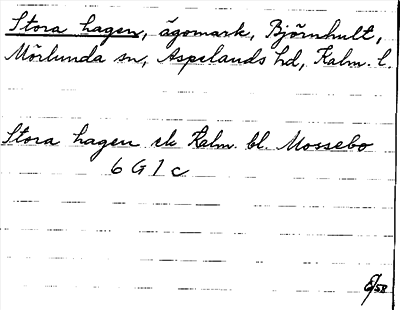 Stora hagen, ägomark, Björnhult,
Mörlunda sn, Aspelands hd, Kalm. l.
Stora hagen ek Kalm. bl. Mossebo
6 G 1 c
/58